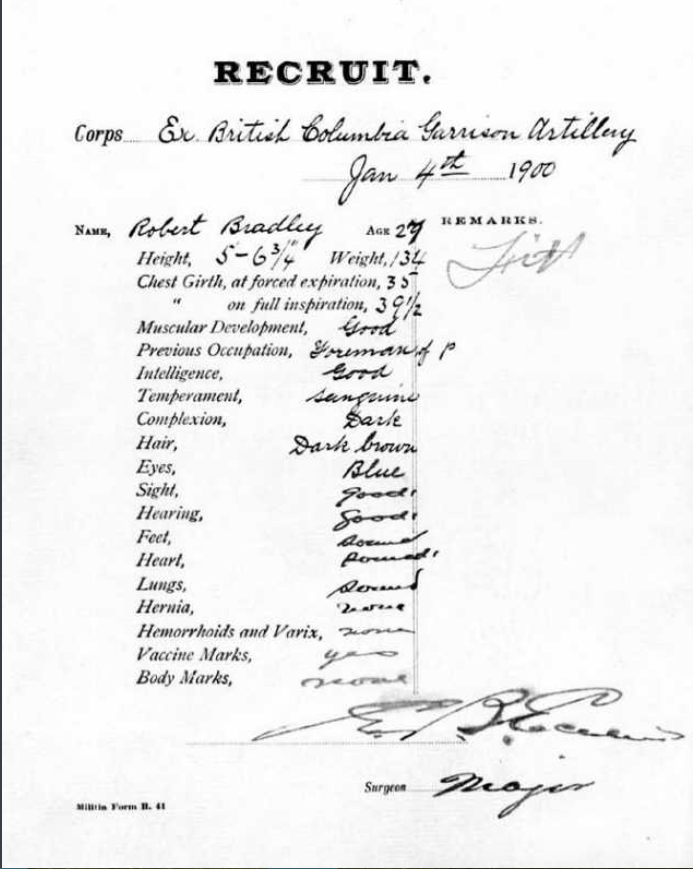 RECRUIT.
Corps Ex. British Columbia Garrison Artillery
Jan 4th 1900
NAME, Robert Bradley AGE 27 REMARKS.
Height, 5-6 3/4" Weight, 134 Fit
Chest Girth, at forced expiration, 35
" on full inspiration, 39 1/2
Muscular Development, Good
Previous Occupation, Foreman of P
Intelligence, Good
Temperament, sanguine
Complexion, Dark
Hair, Dark brown
Eyes, Blue
Sight, good.
Hearing, good.
Feet, sound
Heart, sound.
Lungs, sound
Hernia, none
Hemorrhoids and Varix, none
Vaccine Marks, yes
Body Marks, none
Surgeon Major
Militia Form B. 41